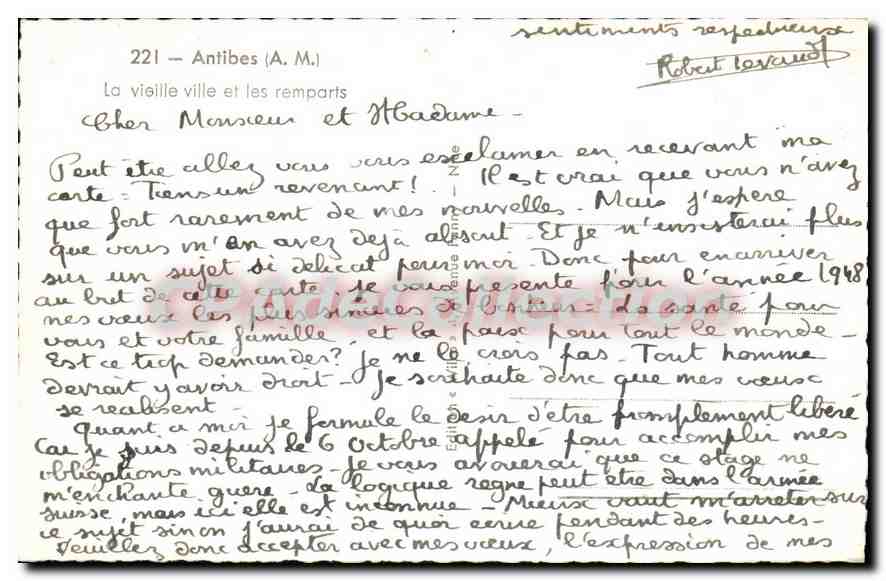 221 — Antibes (A. M.)
La vieille ville et les remparts
Cher Monsieur et Madame -
Peut être allez vous vous esclamer en recevant ma
carte = Tiens un revenant ! Il est vrai que vous n'avez
que fort rarement de mes nouvelles. Mais j'espère
que vous m'en avez dejà absout. Et je n'insisterai plus
sur un sujet si délicat pour moi. Donc pour en arriver
au but de cette carte je vous présente pour l'année 1948
mes vœux les plus sincères de bonheur. La santé pour
vous et votre famille et la paix pour tout le monde -
Est ce trop demander? Je ne le crois pas - Tout homme
devrait y avoir droit - Je souhaite donc que mes vœux
se réalisent -
Quant a moi je formule le desir d'être promplement libéré
Car je suis depuis le 6 Octobre appelé pour accomplir mes
obligations militaires - Je vous avouerai que ce stage ne
m'enchante guere - La logique regne peut être dans l'armée
suisse, mais ici elle est inconnue - Mieux vaut m'arreter sur
ce sujet sinon j'aurai de quoi ecrire pendant des heures -
Veuillez donc accepter avec mes vœux, l'expression de mes
sentiments respectueux
Robert
Edition « Villes
Avenue
— Nice
CPADECOLLECTION